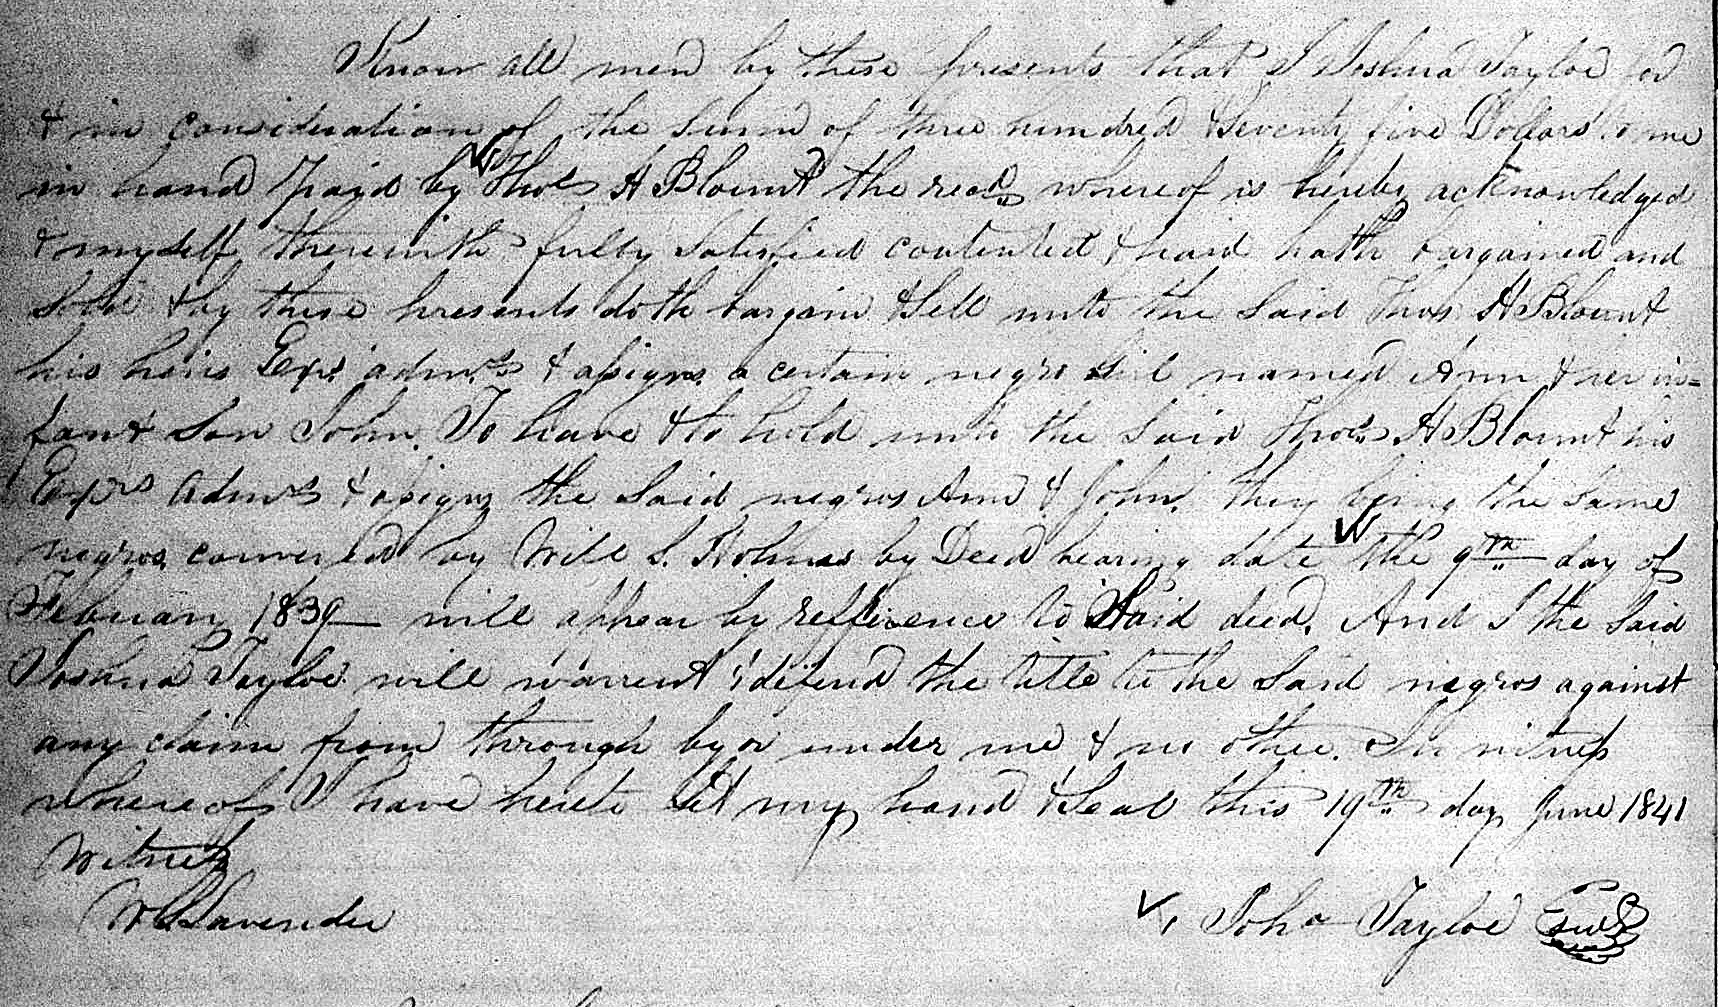 Know all men by these presents that I Joshua Tayloe for
& in consideration of the sum of three hundred & Seventy five Dollars to me
in hand paid by Thos H Blount the recd whereof is hereby acknowledged
& myself therewith fully satisfied contented & paid hath bargained and
sold & by these presents doth bargain & sell unto the said Thos H Blount
his heirs Exrs admrs & assigns a certain negro girl named Ann & her in=
fant son John. To have & to hold unto the said Thos H Blount his
Exrs admrs & assigns the said negros Ann & John, they being the same
negros conveyed by Will S. Holmes by Deed bearing date the 9th day of
February 1839 will appear by refference to said deed. And I the said
Joshua Tayloe will warrent & defend the title to the said negros against
any claim from through by or under me & no other. In witness
whereof I have hereto set my hand & seal this 19th day June 1841
Witness
W Lavender
Josha Tayloe Seal